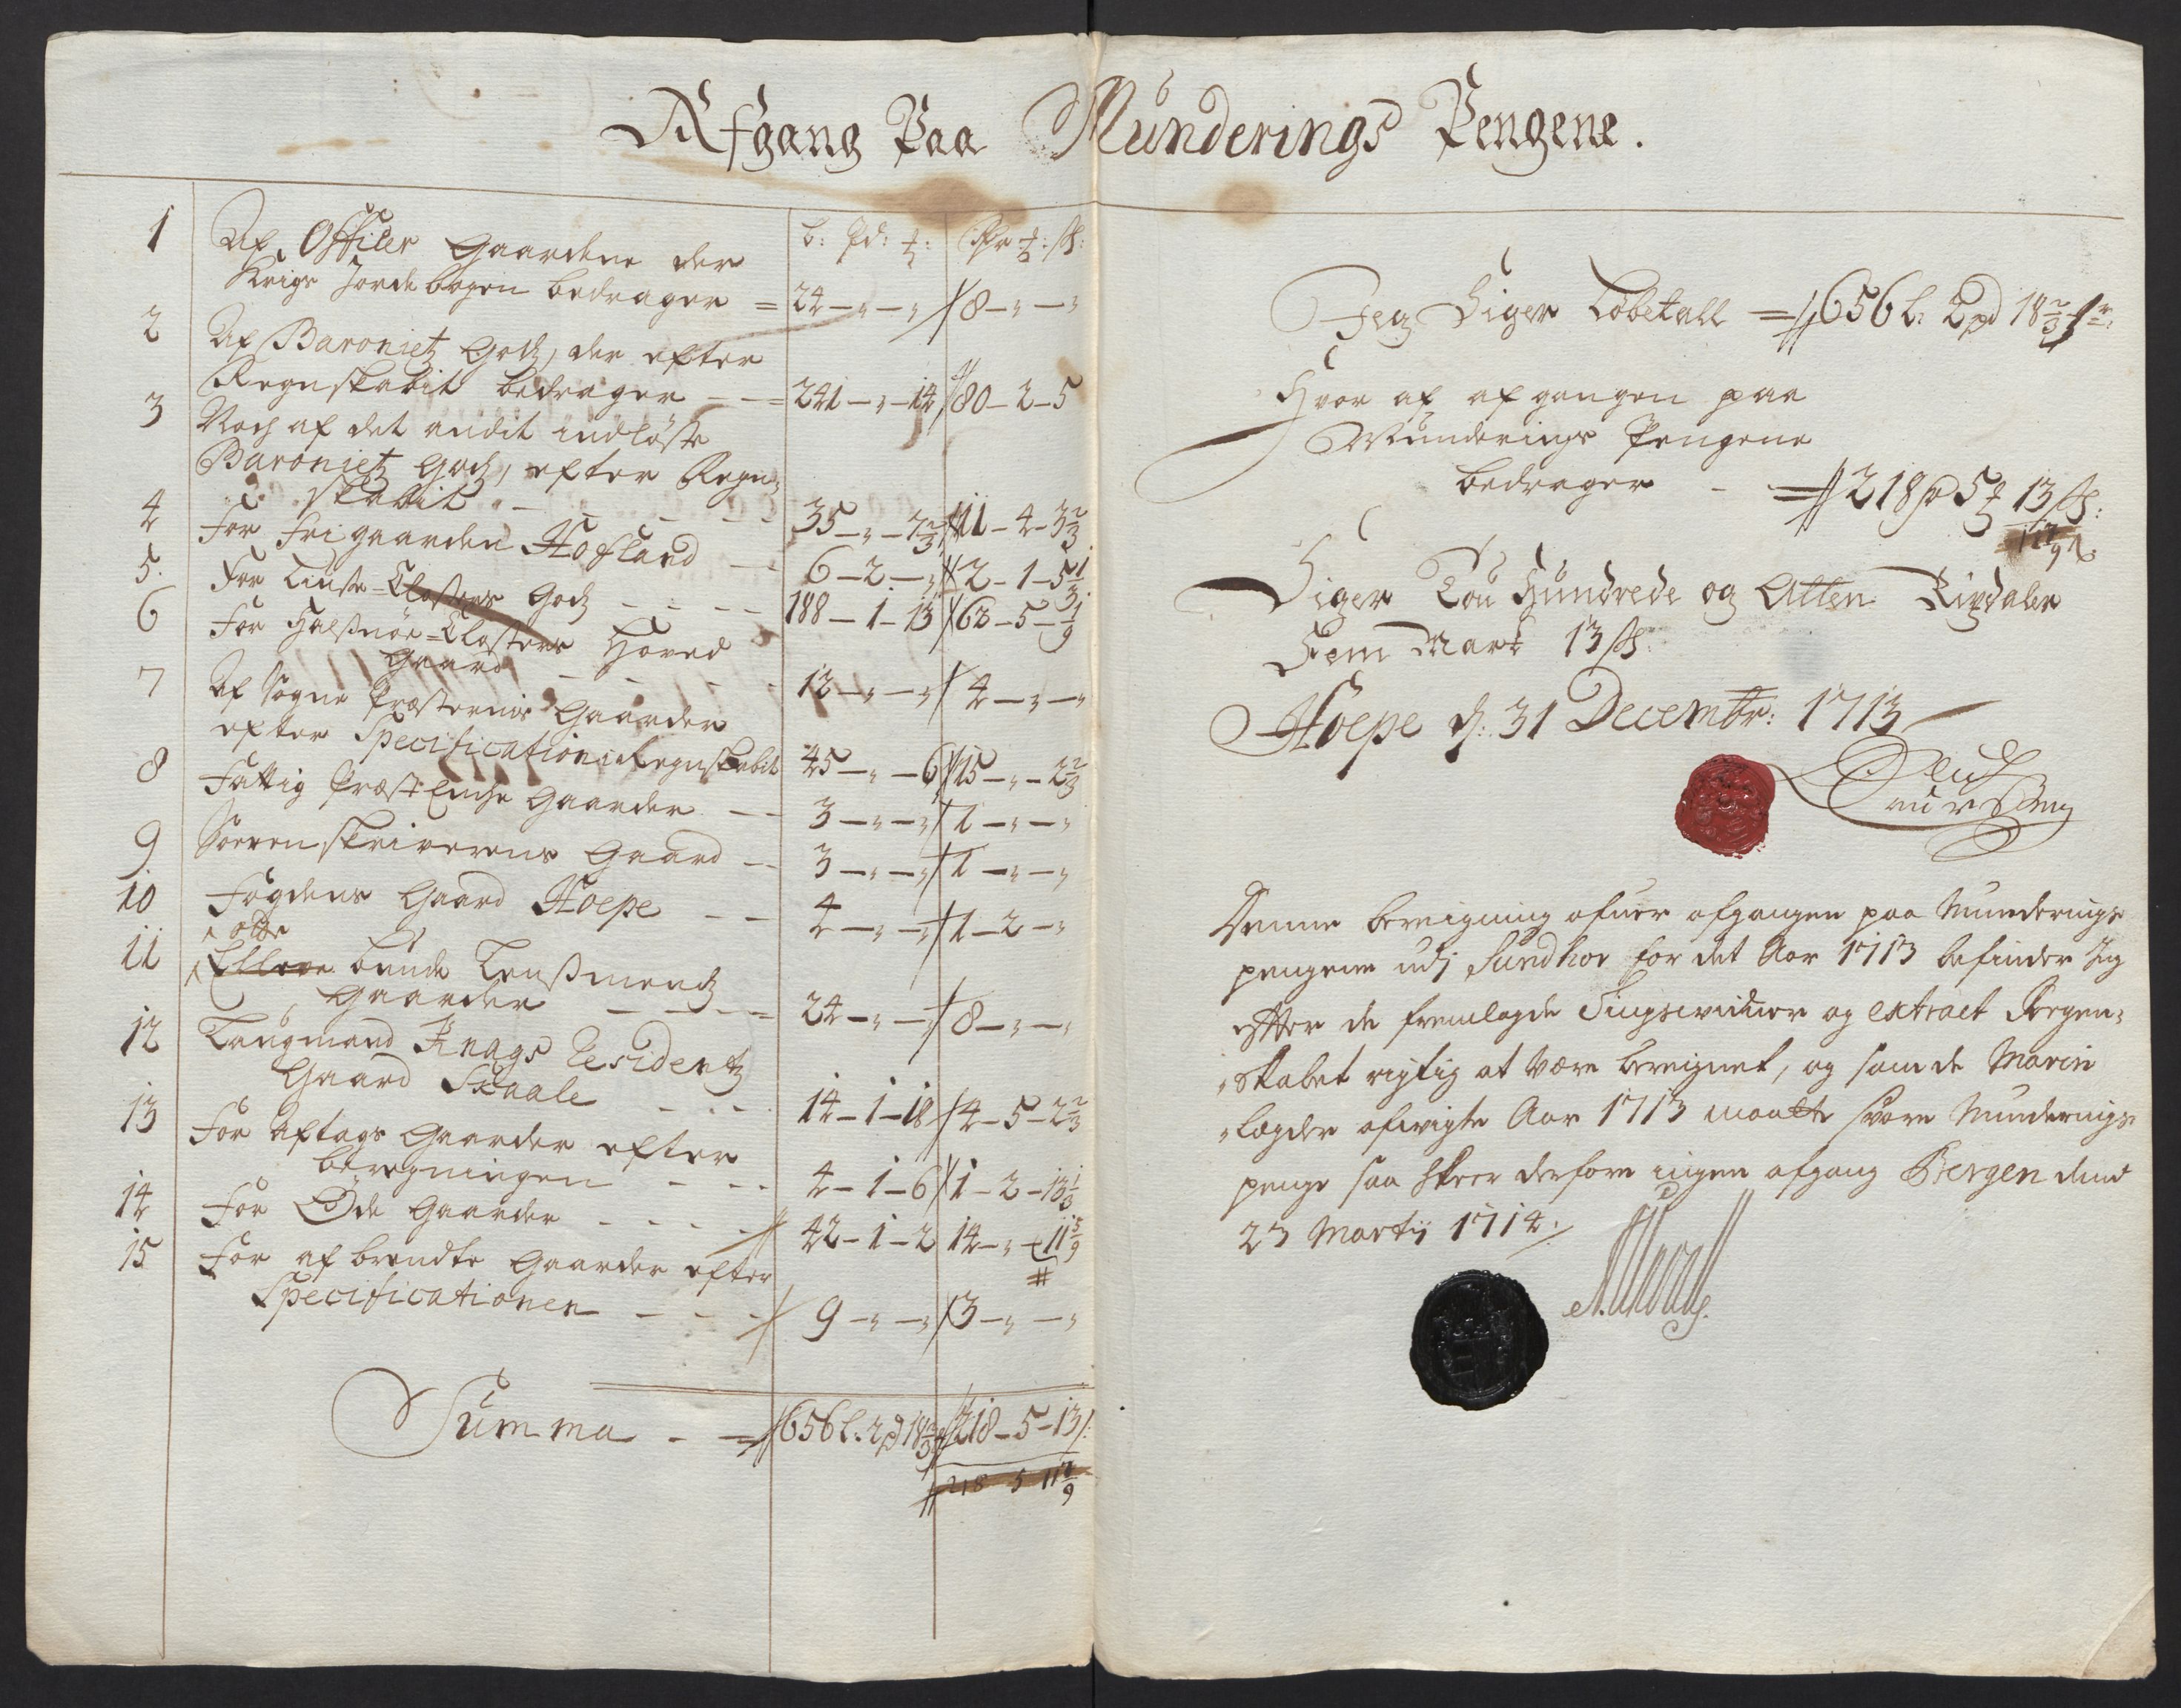 Afgang Paa Munderings Pengene.
L: Pd: ♃: Rdr ♃: ß:
1 Af Officer Gaardene der
Krigs Jordebogen bedrager = 24 - „ - „ 8 - „ - „
2 Af Baroniets Godz, der efter
Regnskabit bedrager - - = 241 - „ - 14 80 - 2 - 5
3 Noch af det andit indløste
Baroniets Godz, efter Regn-
skabit - - - - - 35 - „ - 7 2/3 11 - 4 - 3 2/3
4 For Frigaarden Hofland - - 6 - 2 - „ 2 - 1 - 5 1/3
5. For Liuse-Closters Godz - - - - 188 - 1 - 13 62 - 5 - 1/9
6 For Halsnöe-Closters Hoved
Gaard - - - - 12 - „ - „ 4 - „ - „
7 Af Sogne Præsternis Gaarder
efter Specification i Regnskabit 45 - „ - 6 15 - „ - 2 2/3
8 Fattig Præst Enche Gaarder - - 3 - „ - „ 1 - „ - „
9 Sorenskriverens Gaard - - 3 - „ - „ 1 - „ - „
10 Fogdens Gaard Hoepe - - 4 - „ - „ 1 - 2 - „
otte
11 Elleve bunde Lensmends
Gaarder - - - = 24 - „ - „ 8 - „ - „
12 Laugmand Knags Residentz
Gaard Skaale - - - 14 - 1 - 18 4 - 5 - 2 2/3
13 For Aftags Gaarder efter
beregningen - - - 4 - 1 - 6 1 - 2 - 13 1/3
14 For Öde Gaarder - - - - 42 - 1 - 2 14 - „ - 11 5/9
15 For afbrendte Gaarder efter
Specificationen - - - 9 - „ - „ 3 - „ - „
Summa - = 656 L: 2 pd 18 2/3 218 - 5 - 13 ß:
218 5 11 7/9
Jeg Siger Løbetall = 656 L: 2 pd 18 2/3
Hvor af afgangen paa
Munderings Pengene
bedrager - = 218 rd 5 ♃ 13 ß:
11 7/9 ß:
Siger Tou Hundrede og Atten Rixdaler
Fem Mark 13 ß
Hoepe d: 31 Decembr: 1713
Denne bereigning ofuer afgangen paa Munderings
pengene udj Sundhor for det Aar 1713 befinder Jeg
efter de fremlagde Tingsvidner og extract Regen-
„skabet rigtig at være bereignet, og som de Marine
„lægder afvigte Aar 1713 maatte svare Munderings
penge saa skeer derfore ingen afgang Bergen dend
23 Martij 1714.